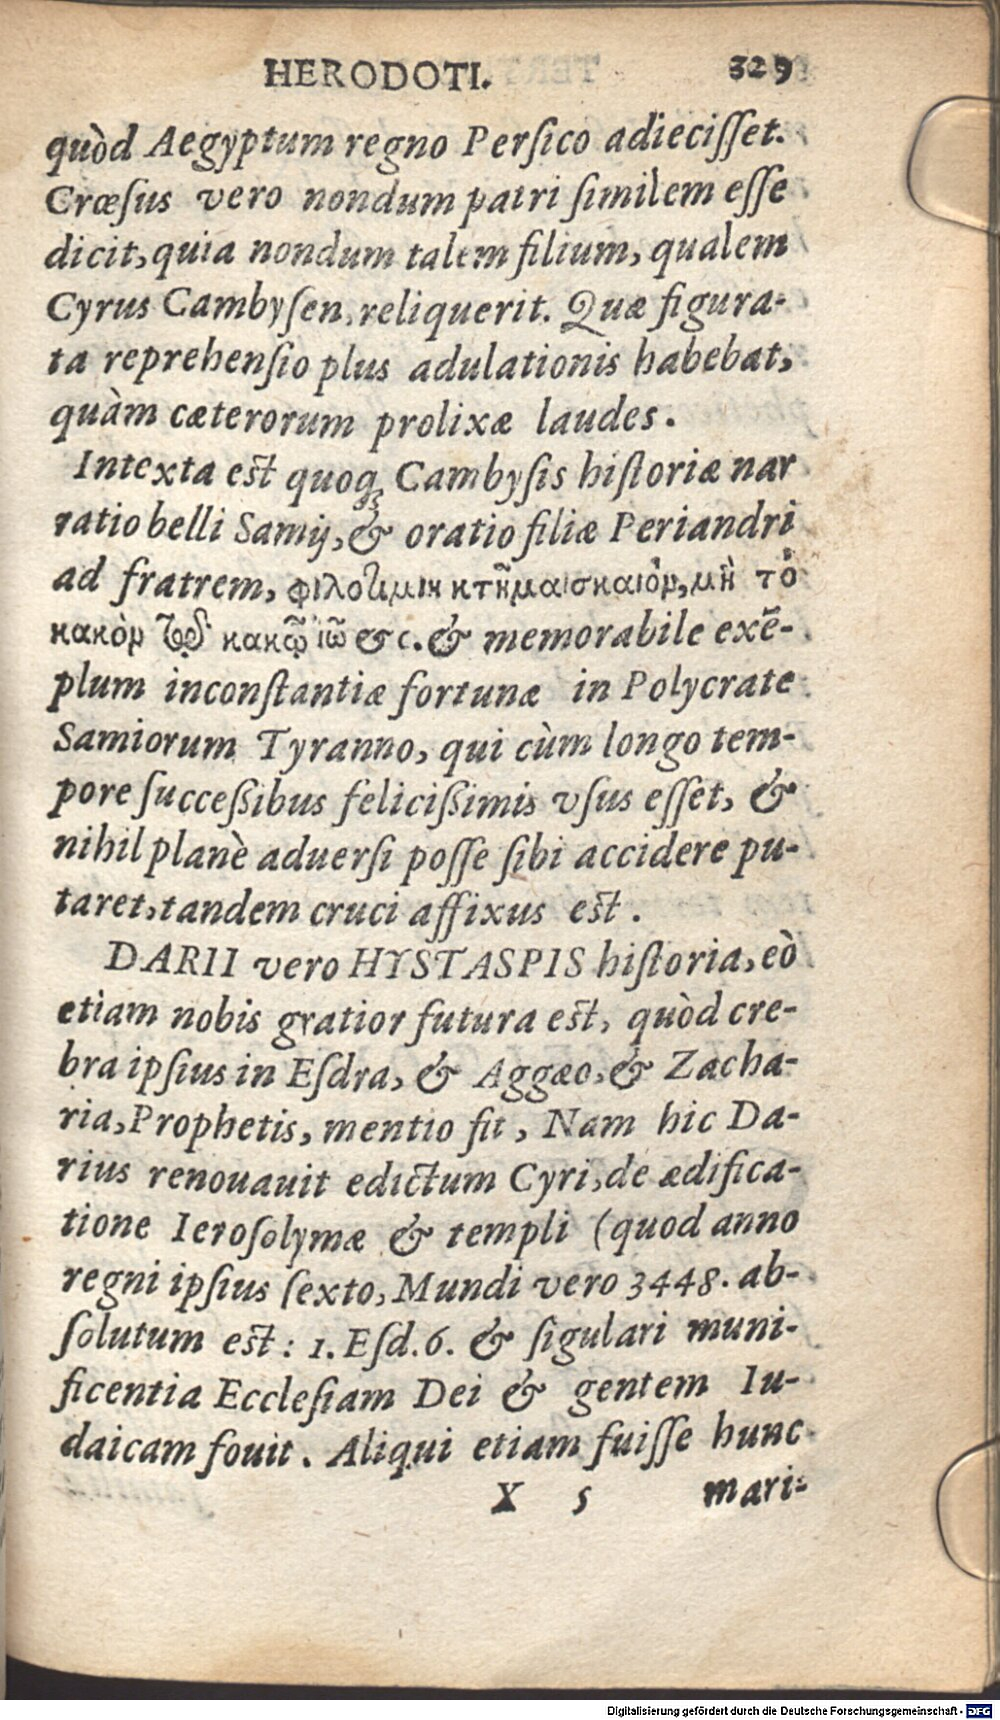 HERODOTI. 329
quòd Aegyptum regno Persico adiecisset.
Crœsus vero nondum patri similem esse
dicit, quia nondum talem filium, qualem
Cyrus Cambysen, reliquerit. Quæ figura-
ta reprehensio plus adulationis habebat,
quàm cæterorum prolixæ laudes.
Intexta est quoqꝫ Cambysis historiæ nar
ratio belli Samij, & oratio filiæ Periandri
ad fratrem, φιλοτιμίη κτῆμα σκαιὸν, μὴ τὸ
κακὸν τῷ κακῷ ἰῶ &c. & memorabile exẽ-
plum inconstantiæ fortunæ in Polycrate
Samiorum Tyranno, qui cùm longo tem-
pore successibus felicissimis vsus esset, &
nihil planè aduersi posse sibi accidere pu-
taret, tandem cruci affixus est.
DARII vero HYSTASPIS historia, eò
etiam nobis gratior futura est, quòd cre-
bra ipsius in Esdra, & Aggæo, & Zacha-
ria, Prophetis, mentio fit, Nam hic Da-
rius renouauit edictum Cyri, de ædifica-
tione Ierosolymæ & templi (quod anno
regni ipsius sexto, Mundi vero 3448. ab-
solutum est: 1. Esd. 6. & sigulari muni-
ficentia Ecclesiam Dei & gentem Iu-
daicam fouit. Aliqui etiam fuisse hunc
X 5 mari-
Digitalisierung gefördert durch die Deutsche Forschungsgemeinschaft - DFG